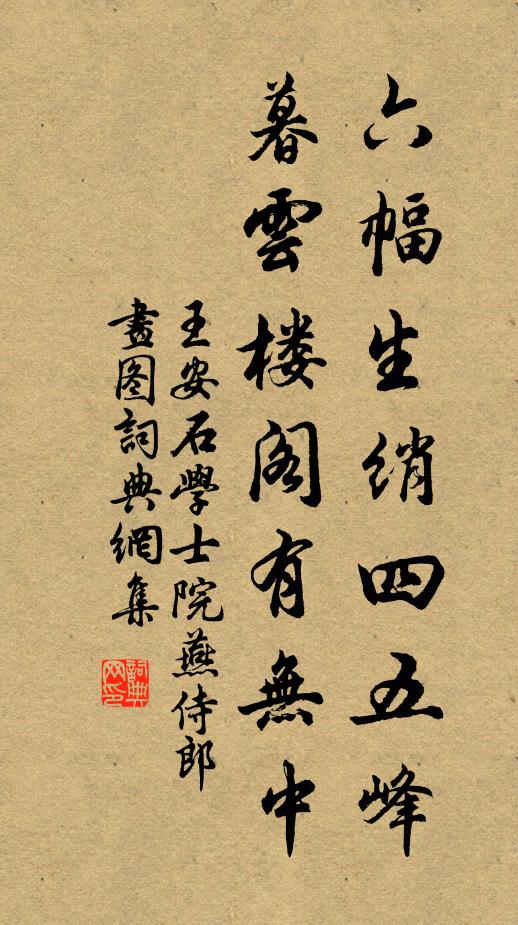 六幅生绡四五峰
暮雲楼阁有無中
王安石學士院燕侍郎
畫图詞典網集
詞典网印